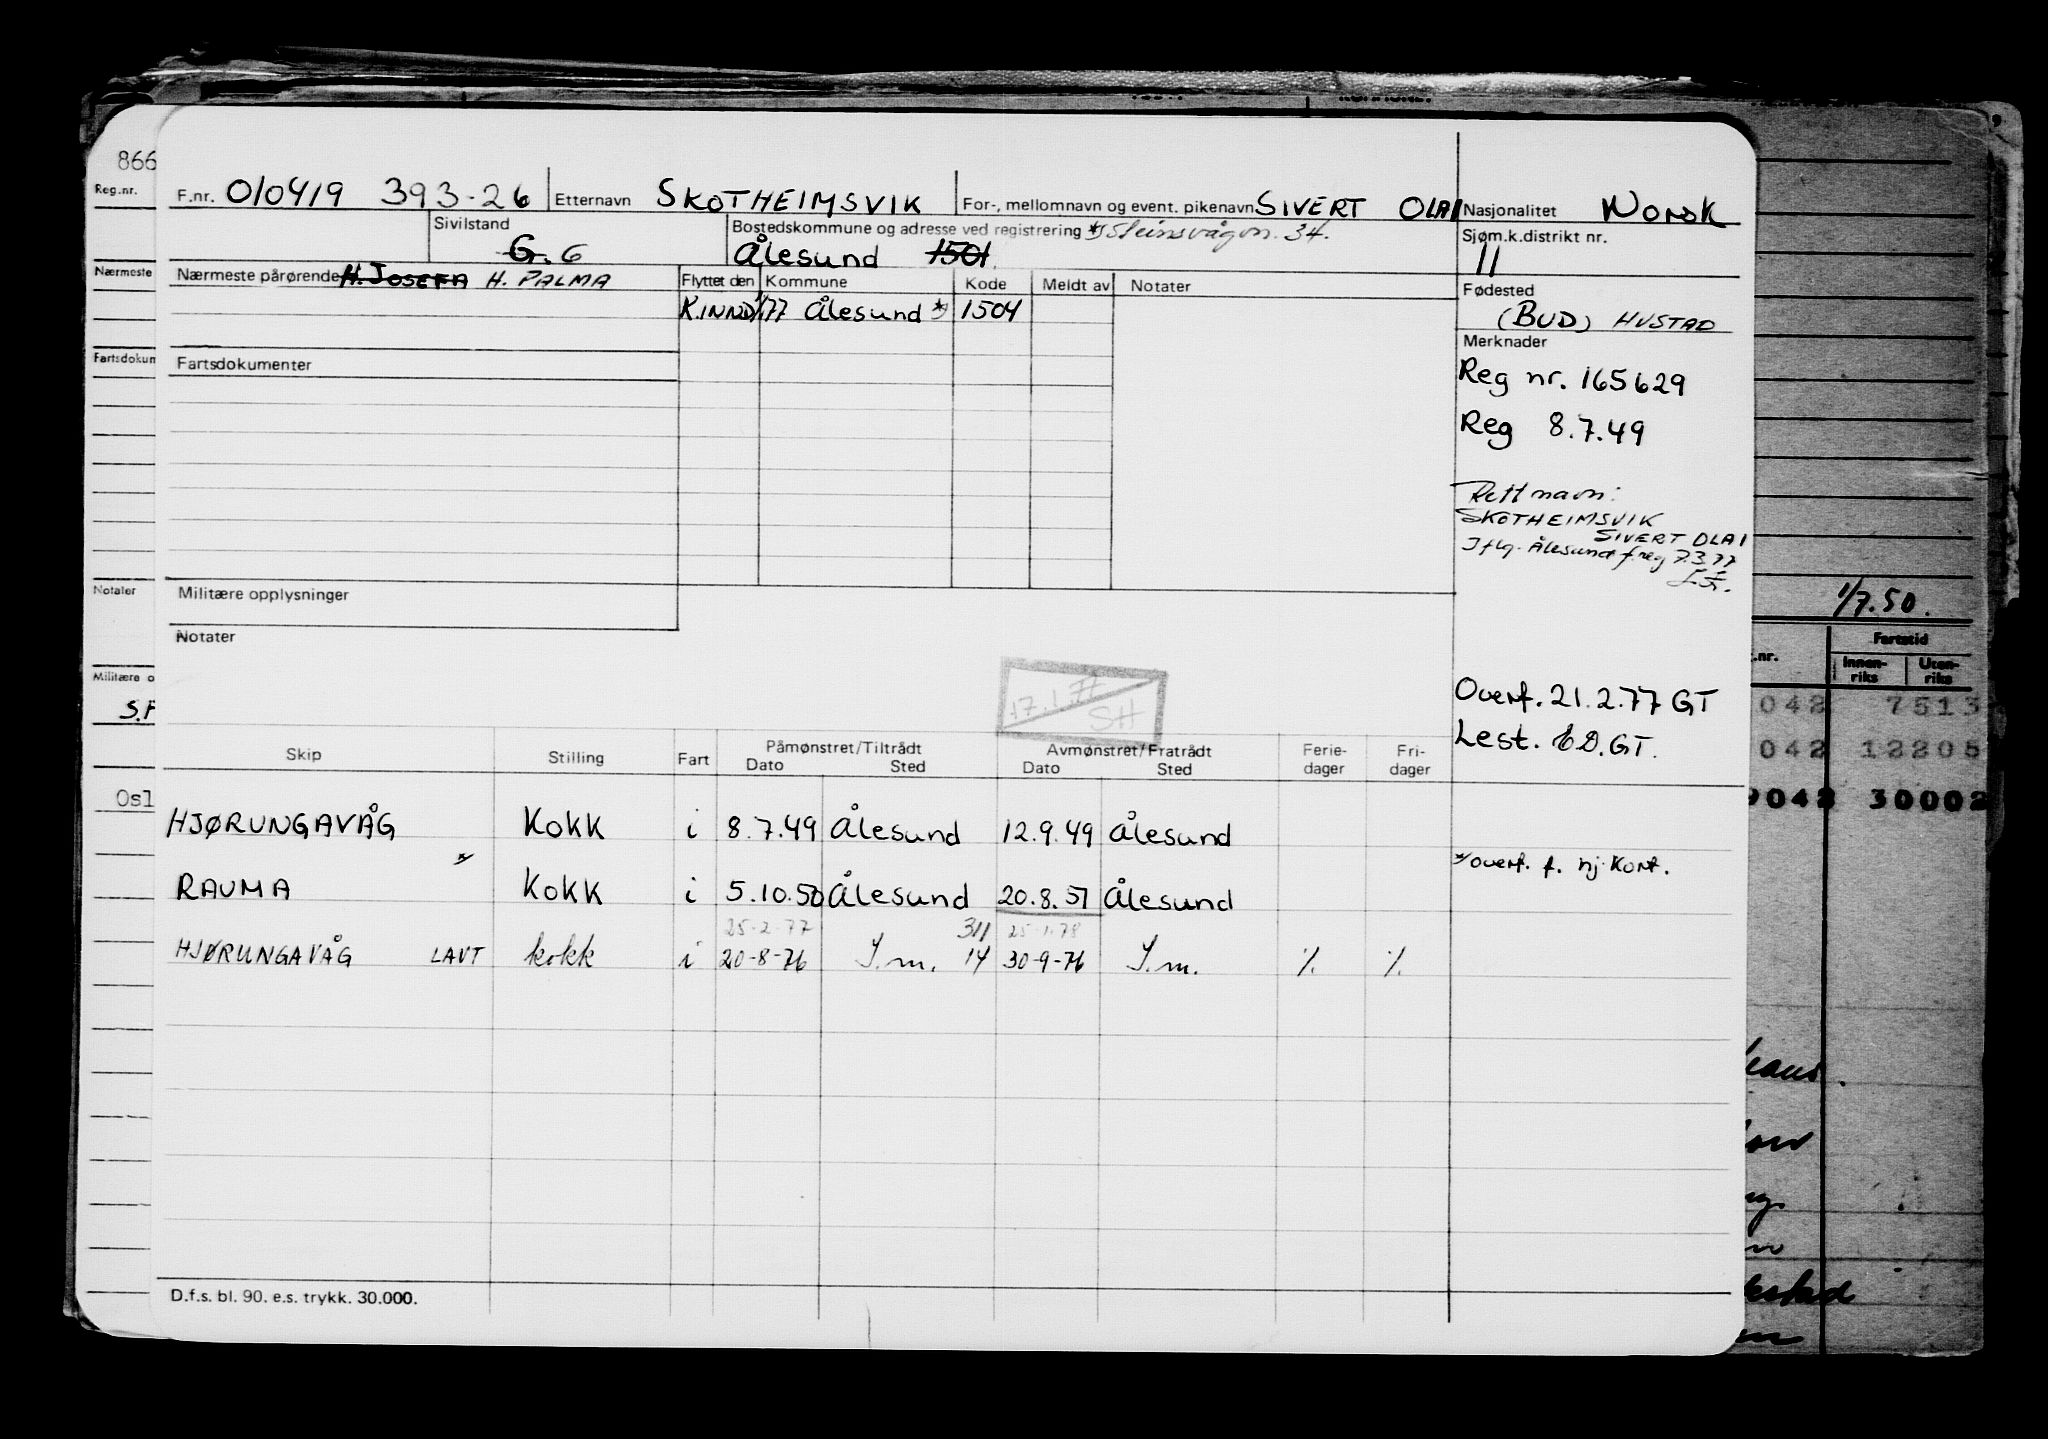 866
Reg.nr.
F.nr. 010419 393-26 Etternavn SKOTHEIMSVIK For-, mellomnavn og event. pikenavn SIVERT OLAI Nasjonalitet Norsk
Sivilstand G. G Bostedskommune og adresse ved registrering *) Steinsvågvn. 34. Sjøm.k.distrikt nr.
Ålesund 1501 11
Nærmeste
Nærmeste pårørende H. JOSEFA H. PALMA Flyttet den Kommune Kode Meldt av Notater Fødested
K.INND 1/1 77 Ålesund *) 1504 (BUD) HUSTAD
Merknader
Fartsdokum
Fartsdokumenter
Reg nr. 165629
Reg 8.7.49
Rett navn:
SKOTHEIMSVIK
SIVERT OLAI
Iflg. Ålesund f.reg 7.3.77
Notater
Militære opplysninger
1/7.50.
Notater
Fartstid
.nr. Innen-riks Uten-riks
Militære o
S.F
17.1.77
SH
Overf. 21.2.77 GT
Lest. ED.GT.
042 7513
042 12205
9042 30002
Skip Stilling Fart Påmønstret/Tiltrådt Avmønstret/Fratrådt Ferie-dager Fri-dager
Dato Sted Dato Sted
Osl
HJØRUNGAVÅG Kokk i 8.7.49 Ålesund 12.9.49 Ålesund
*) overf. f. nj. kort.
RAUMA *) Kokk i 5.10.50 Ålesund 20.8.51 Ålesund
25-2-77 311 25-1-78
HJØRUNGAVÅG LAVT kokk i 20-8-76 I.m. 14 30-9-76 I.m. % %
D.f.s. bl. 90. e.s. trykk. 30.000.